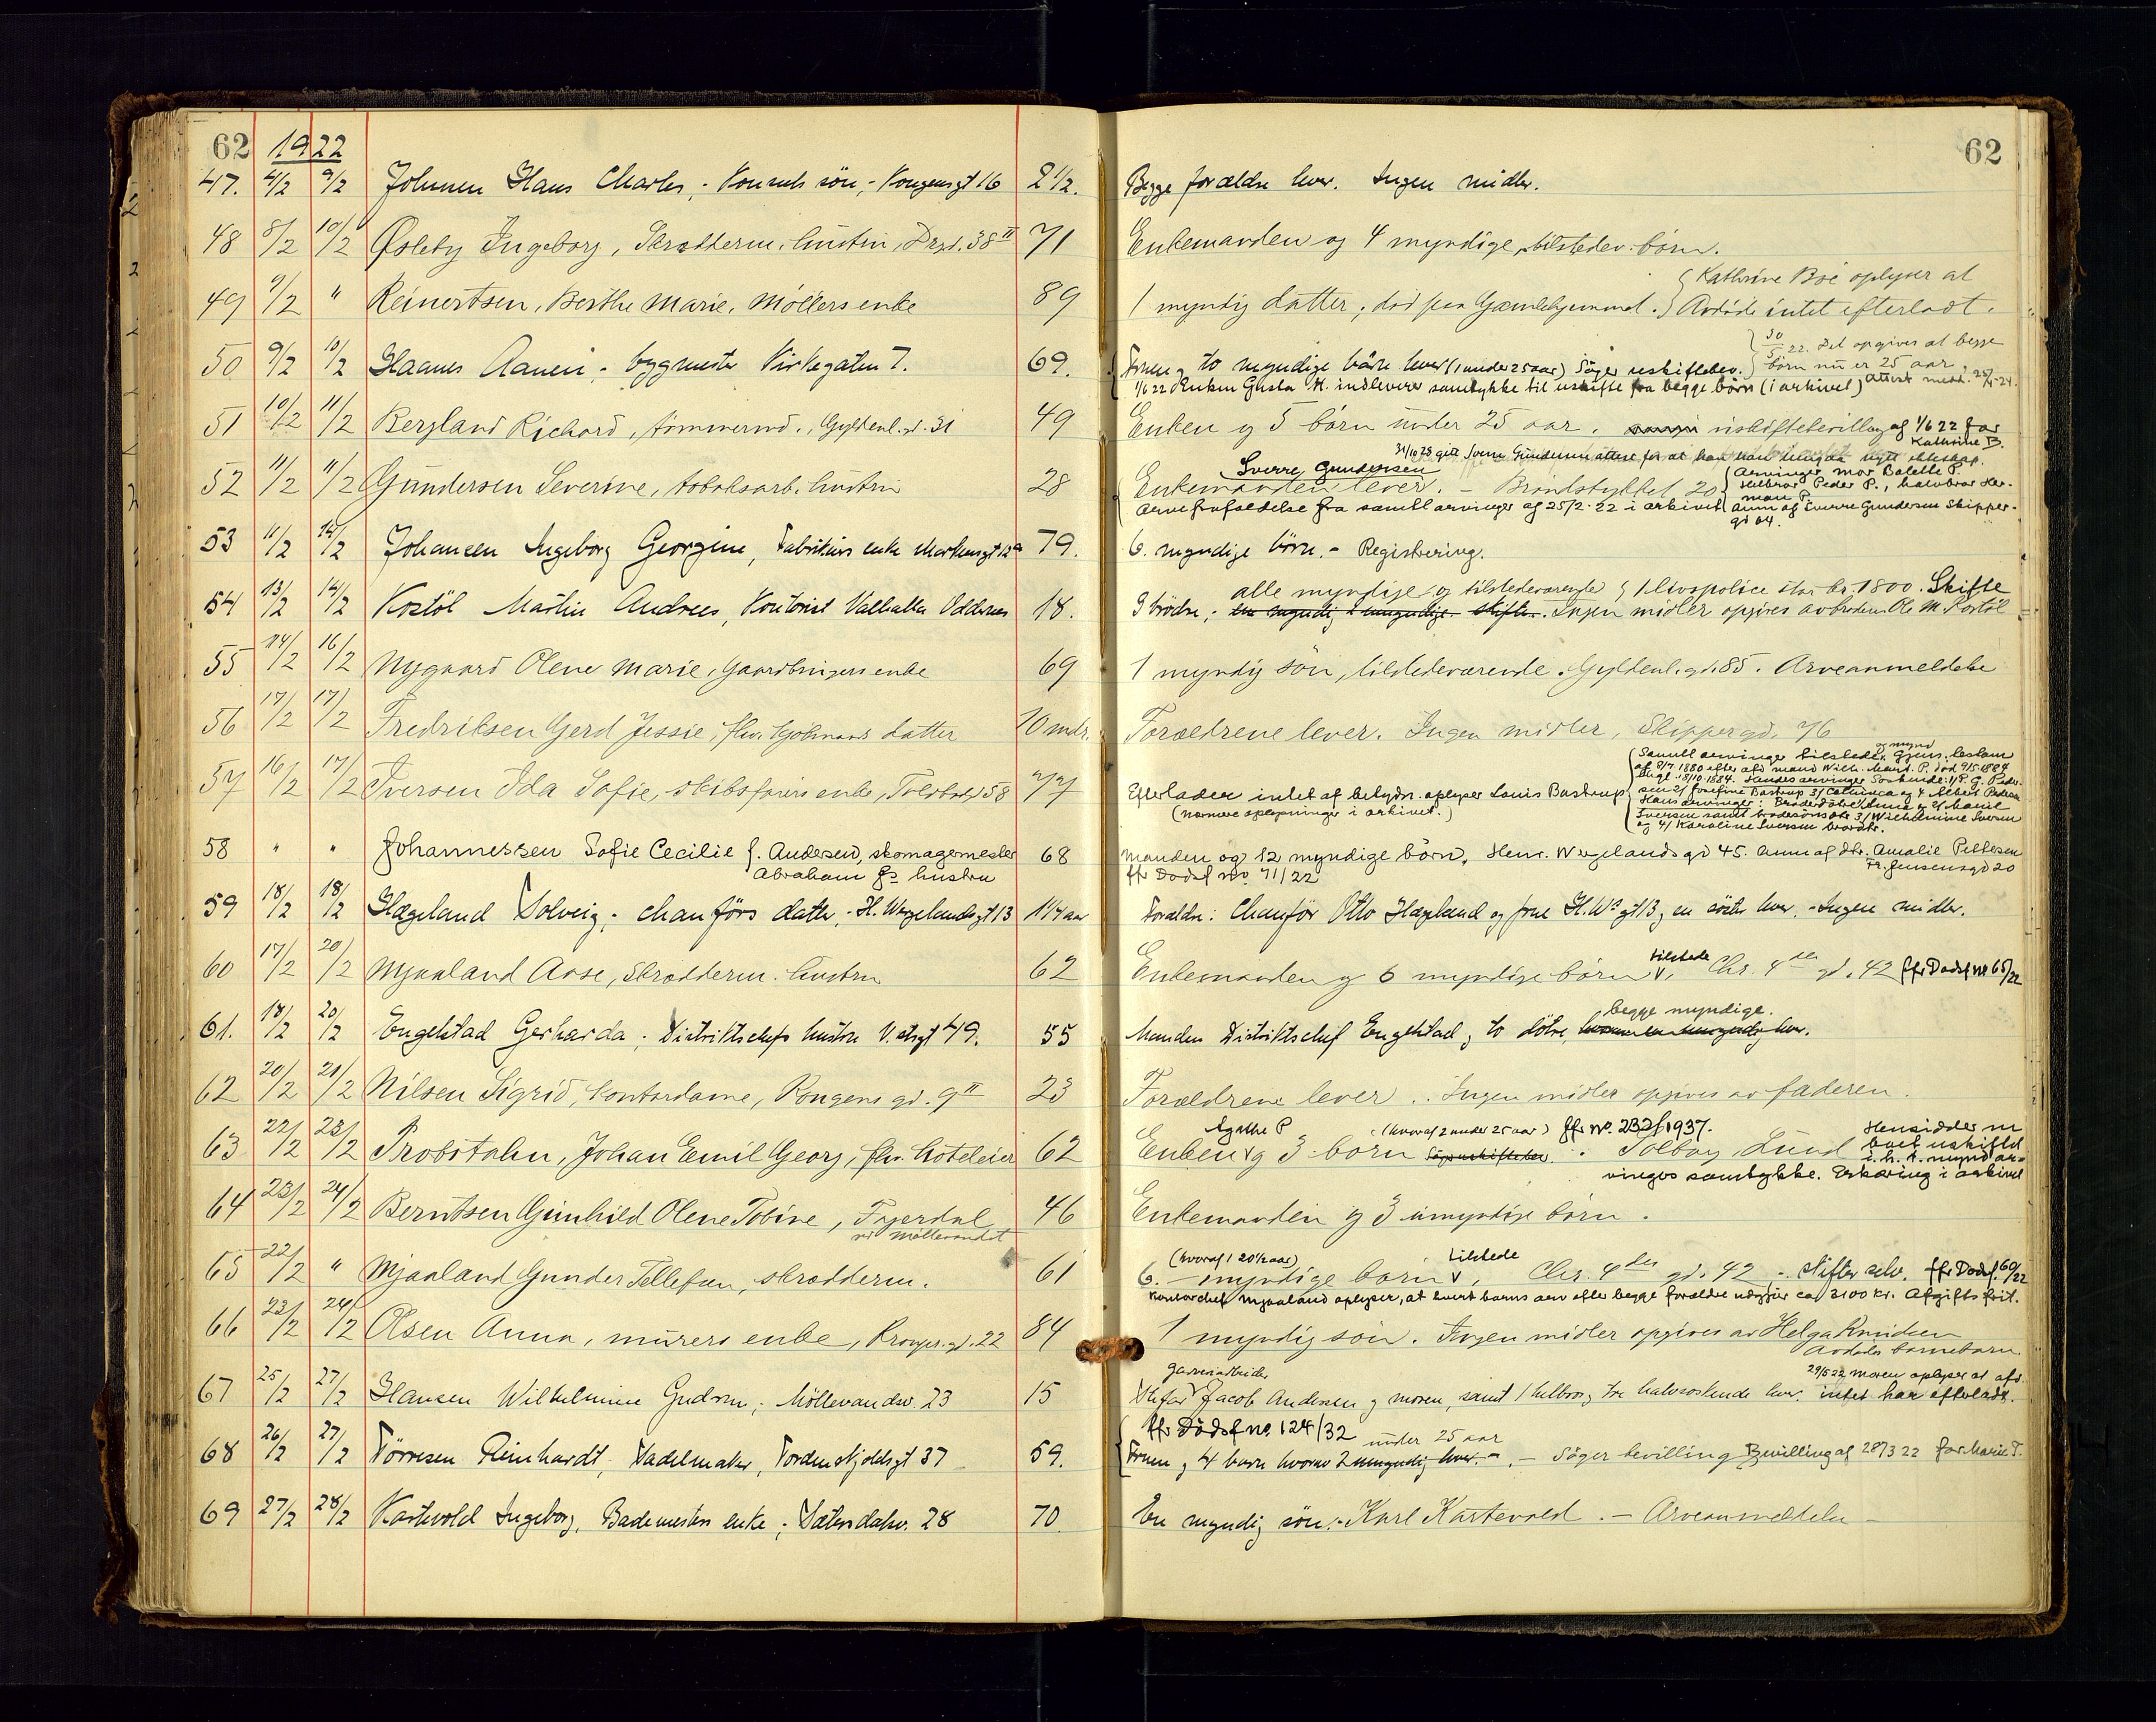 62 1922 62
47. 4/2 9/2 Johnsen Hans Charles, - Konsuls sön, - Kongensgt 16 2 1/2. Begge forældre lever. Ingen midler.
48 8/2 10/2 Øsleby Ingeborg, Skrædderm. hustru, Drgd. 38 II 71 Enkemanden og 4 myndige, tilstedev. börn.
Kathrine Boe oplyser at
49 9/2 " Reinertsen, Berthe Marie, Möllers enke 89 1 myndig datter; död paa Gamlehjemmet. Avdöde intet efterladt.
30/5 22. Det opgives at begge
börn nu er 25 aar.
50 9/2 10/2 Haanes Aanen, - bygmester Kirkegaten 7. 69. Fruen og to myndige börn lever (1 under 25 aar) Söger uskiftebev.
1/6 22 Enken Gusta H. indleverer samtykke til uskifte fra begge börn (i arkivet) Attest medd. 25/4-24.
51 10/2 11/2 Bergland Richard, tömmermd., Gyldenl. gd. 31 49 Enken og 5 börn under 25 aar. uskiftebevilling af 1/6 22 for
Kathrine B.
31/10 23 gitt Sverre Gundersen attest for at han kan indgaa nytt ekteskap.
Sverre Gundersen
52 11/2 11/2 Gundersen Severine, tobaksarb. hustru 28 Enkemanden lever. - Brændstykket 20
Arvinger mor Bolette P.
Helbror Peder P., halvbror Her-
man P.
Arvefrafaldelse fra samtl arvinger af 25/2-22 i arkivet Anm af Sverre Gundersen Skipper-
gd 64.
53 11/2 14/2 Johansen Ingeborg Georgine, Fabrikörs enke Markensgt 12a 79. 6. myndige börn. - Registrering.
alle myndige og tilstedeværende 1 livspolice stor kr. 1800. Skifte
54 13/2 14/2 Kostöl Martin Andreas, Kontorist Valhalla Oddernes 18. 9 brödre; en myndig umyndige skifte. Ingen midler opgives av broderen Ole M. Kostöl
55 14/2 16/2 Nygaard Olene Marie, Gaardbrugers enke 69 1 myndig sön, tilstedeværende. Gyldenl. gd. 85. Arveanmeldelse
56 17/2 17/2 Fredriksen Gerd Jessie, fhv. Kjöbmands datter 10 mdr. Forældrene lever. Ingen midler, Skippergd. 76
og mynd
Samtl arvinger tilstede. Gjens. testam
af 8/7. 1880 efter afd mand Wilh. Mand. P. död 9/5-1884
57 16/2 17/2 Iversen Ida Sofie, skibsförers enke, Toldbodgd 58 77 Efterlader intet af betydn. oplyser Louis Bastrup
(nærmere oplysninger i arkivet.)
Hans arvinger: Broderdötre Anna og 2/ Marie
Iversen samt brodersönsdtr 3/ Wilhelmine Iversen
og 4/ Karoline Iversen brordtr.
58 " " Johannessen Sofie Cecilie f. Andersen, skomagermester 68 Manden og 12 myndige börn. Henr. Wergelandsgd 45. Anm af dtr. Amalie Pettersen
Abraham Js hustru jfr Dödsf no. 71/22 Fr. Jensensgd 20
59 18/2 18/2 Hægeland Solveig; chauförs datter, - H. Wergelandsgt 13 1 1/4 aar Forældre: Chauför Otto Hægeland og frue H. Ws gt 13 og en söster lever. - Ingen midler.
60 17/2 20/2 Mjaaland Aase, Skrædderm. hustru 62 Enkemanden og 6 myndige börn tilstede, Chr. 4des gd. 42 jfr Dödsf no 65/22
begge myndige.
61. 18/2 20/2 Engelstad Gerharda; Distriktschefs hustru V. strgt 49. 55 Manden Distriktschef Engelstad og to dötre, hvorav en umyndig lever.
62 20/2 21/2 Nilsen Sigrid, kontordame, Kongens gd. 9 II 23 Forældrene lever. Ingen midler opgives av faderen.
Agathe P (hvoraf 2 under 25 aar) jfr no. 232/1937. Hensidder m
63 22/2 23/2 Probstahn, Johan Emil Georg, fhv. hoteleier 62 Enken og 3 börn Söger uskiftebev. Solborg, Lund boet uskiftet
i. h. t. mynd ar-
vingers samtykke. Erklæring i arkivet
64 23/2 24/2 Berntsen Gunhild Olene Tobine, Fagerdal 46 Enkemanden og 3 umyndige börn.
ved Möllevandet
(hvoraf 1 20 1/2 aar) tilstede
65 22/2 " Mjaaland Gunder Tellefsen, skrædderm. 61 6. myndige börn, Chr. 4des gd. 42, - skifter selv. jfr Dödsf. 60/22
Kontorchef Mjaaland oplyser, at hvert barns arv efter begge forældre udgjör ca 3100 kr. Afgiftsfrit.
66 23/2 24/2 Olsen Anna, murers enke, Kronprgd. 22 84 1 myndig sön. Ingen midler opgives av Helga Knudsen
Avdödes barnebarn.
gasverkarbeider 29/5 22 Moren oplyser at afd.
67 25/2 27/2 Hansen Wilhelmine Gudrun; Möllevandsv. 23 15 Stefar Jacob Andersen og moren, samt 1 helbror og tre halvsöskende lever. intet har efterladt.
jfr Dödsf no. 124/32 under 25 aar
68 26/2 27/2 Törresen Reinhardt, Sadelmaker, Tordenskjoldsgt 37 59. Fruen og 4 barn hvorav 2 umyndig lever. - Söger bevilling Bevilling af 28/3 22 for Marie T.
69 27/2 28/2 Kartevold Ingeborg, Bademesters enke; Sætersdalsv. 28 70. En myndig sön; - Karl Kartevold. - Arveanmeldelse -